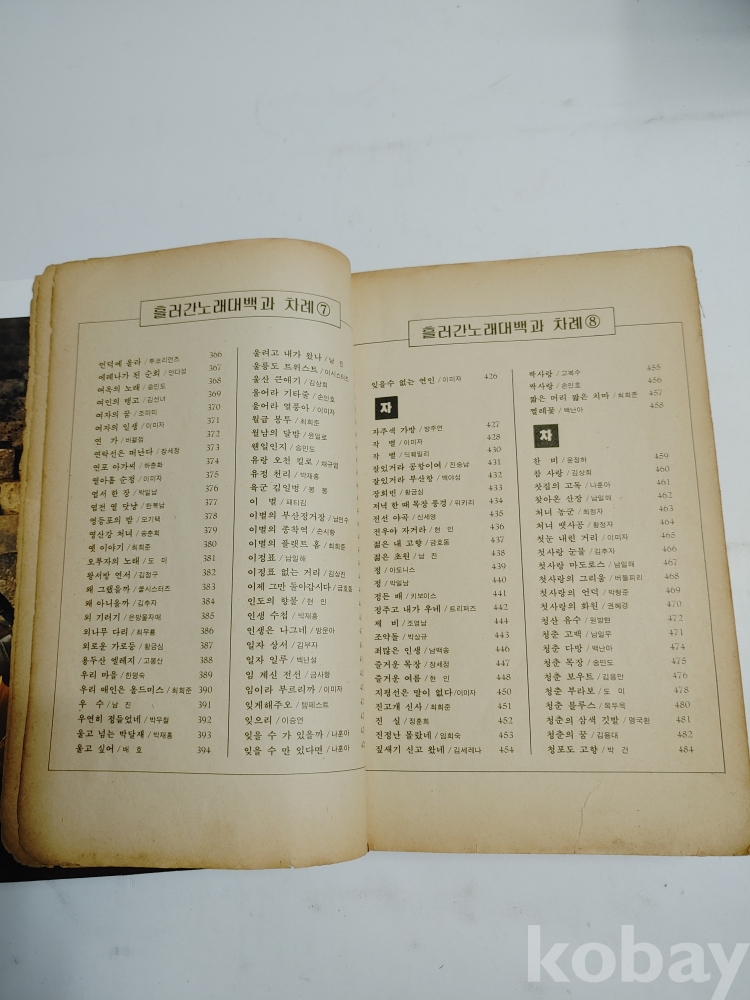 흘러간노래대백과 차례⑦
언덕에 올라/투코리언즈 366
에레나가 된 순희/안다성 367
여옥의 노래/송민도 368
여인의 행고/김선녀 369
여자의 꿈/조미미 370
여자의 일생/이미자 371
연 가/바블껌 372
연락선은 떠난다/장세정 373
연포 아가씨/하춘화 374
열아홉 순정/이미자 375
엽서 한 장/박일남 376
엽전 열 닷냥/한복남 377
영등포의 밤/오기택 378
영산강 처녀/송춘희 379
옛 이야기/최희준 380
오부자의 노래/도 미 381
왕서방 연서/김정구 382
왜 그랬을까/쿨시스터즈 383
왜 아니올까/김추자 384
외 기러기/은방울자매 385
외나무 다리/최무룡 386
외로운 가로등/황금심 387
용두산 엘레지/고봉산 388
우리 마을/한명숙 389
우리 애인은 올드미스/최희준 390
우 수/남 진 391
우연히 정들었네/박우철 392
울고 넘는 박달재/박재홍 393
울고 싶어/배 호 394
울려고 내가 왔나/남 진
울릉도 트위스트/이시스터즈
울산 큰애기/김상희
울어라 기타줄/손인호
울어라 열풍아/이미자
월급 봉투/최희준
월남의 달밤/윈일로
웬일인지/송민도
유랑 오천 킬로/채규엽
유정 천리/박재홍
육군 김일병/봉 봉
이 별/패티김
이별의 부산정거장/남인수
이별의 종착역/손시향
이별의 플랫트 홈/최희준
이정표/남일해
이정표 없는 거리/김상진
이제 그만 돌아갑시다/금호동
인도의 향불/현 인
인생 수첩/박재홍
인생은 나그네/방운아
일자 상서/김부자
일자 일루/백난설
임 계신 전선/금사향
임이라 부르리까/이미자
잊게해주오/템페스트
잊으리/이승연
잊을 수 가 있을까/나훈아
잊을 수 만 있다면/나훈아
흘러간노래대백과 차례⑧
잊을수 없는 연인/이미자 426
자
자주색 가방/방주연 427
작 별/이미자 428
작 별/딕훼밀리 430
잘있거라 공항이여/진송남 431
잘있거라 부산항/백야성 432
장희빈/황금심 433
저녁 한 때 목장 풍경/위키리 434
전선 야곡/신세영 435
전우야 자거라/현 인 436
젊은 내 고향/금호동 437
젊은 초원/남 진 438
정/아도니스 439
정/박일남 440
정든 배/키보이스 441
정주고 내가 우네/트리퍼즈 442
제 비/조영남 444
조약돌/박상규 443
죄많은 인생/남백송 446
즐거운 목장/장세정 447
즐거운 여름/현 인 448
지평선은 말이 없다/이미자 450
진고개 신사/최희준 451
진 실/정훈희 452
진정난 몰랐네/임희숙 453
짚세기 신고 왔네/김세레나 454
짝사랑/고복수 455
짝사랑/손인호 456
짧은 머리 짧은 치마/최희준 457
찔레꽃/백난아 458
차
찬 비/윤정하 459
참 사랑/김상희 460
찻집의 고독/나훈아 461
찾아온 산장/남일해 462
처녀 농군/최정자 463
처녀 뱃사공/황정자 464
첫눈 내린 거리/이미자 465
첫사랑 눈물/김추자 466
첫사랑 마도로스/남일해 467
첫사랑의 그리움/버들피리 468
첫사랑의 언덕/박형준 469
첫사랑의 화원/권혜경 470
청산 유수/원방현 472
청춘 고백/남일우 471
청춘 다방/백난아 474
청춘 목장/송민도 475
청춘 보우트/김용만 476
청춘 부라보/도 미 478
청춘 블루스/옥두옥 480
청춘의 삼색 깃발/명국환 481
청춘의 꿈/김용대 482
청포도 고향/박 건 484
kobay